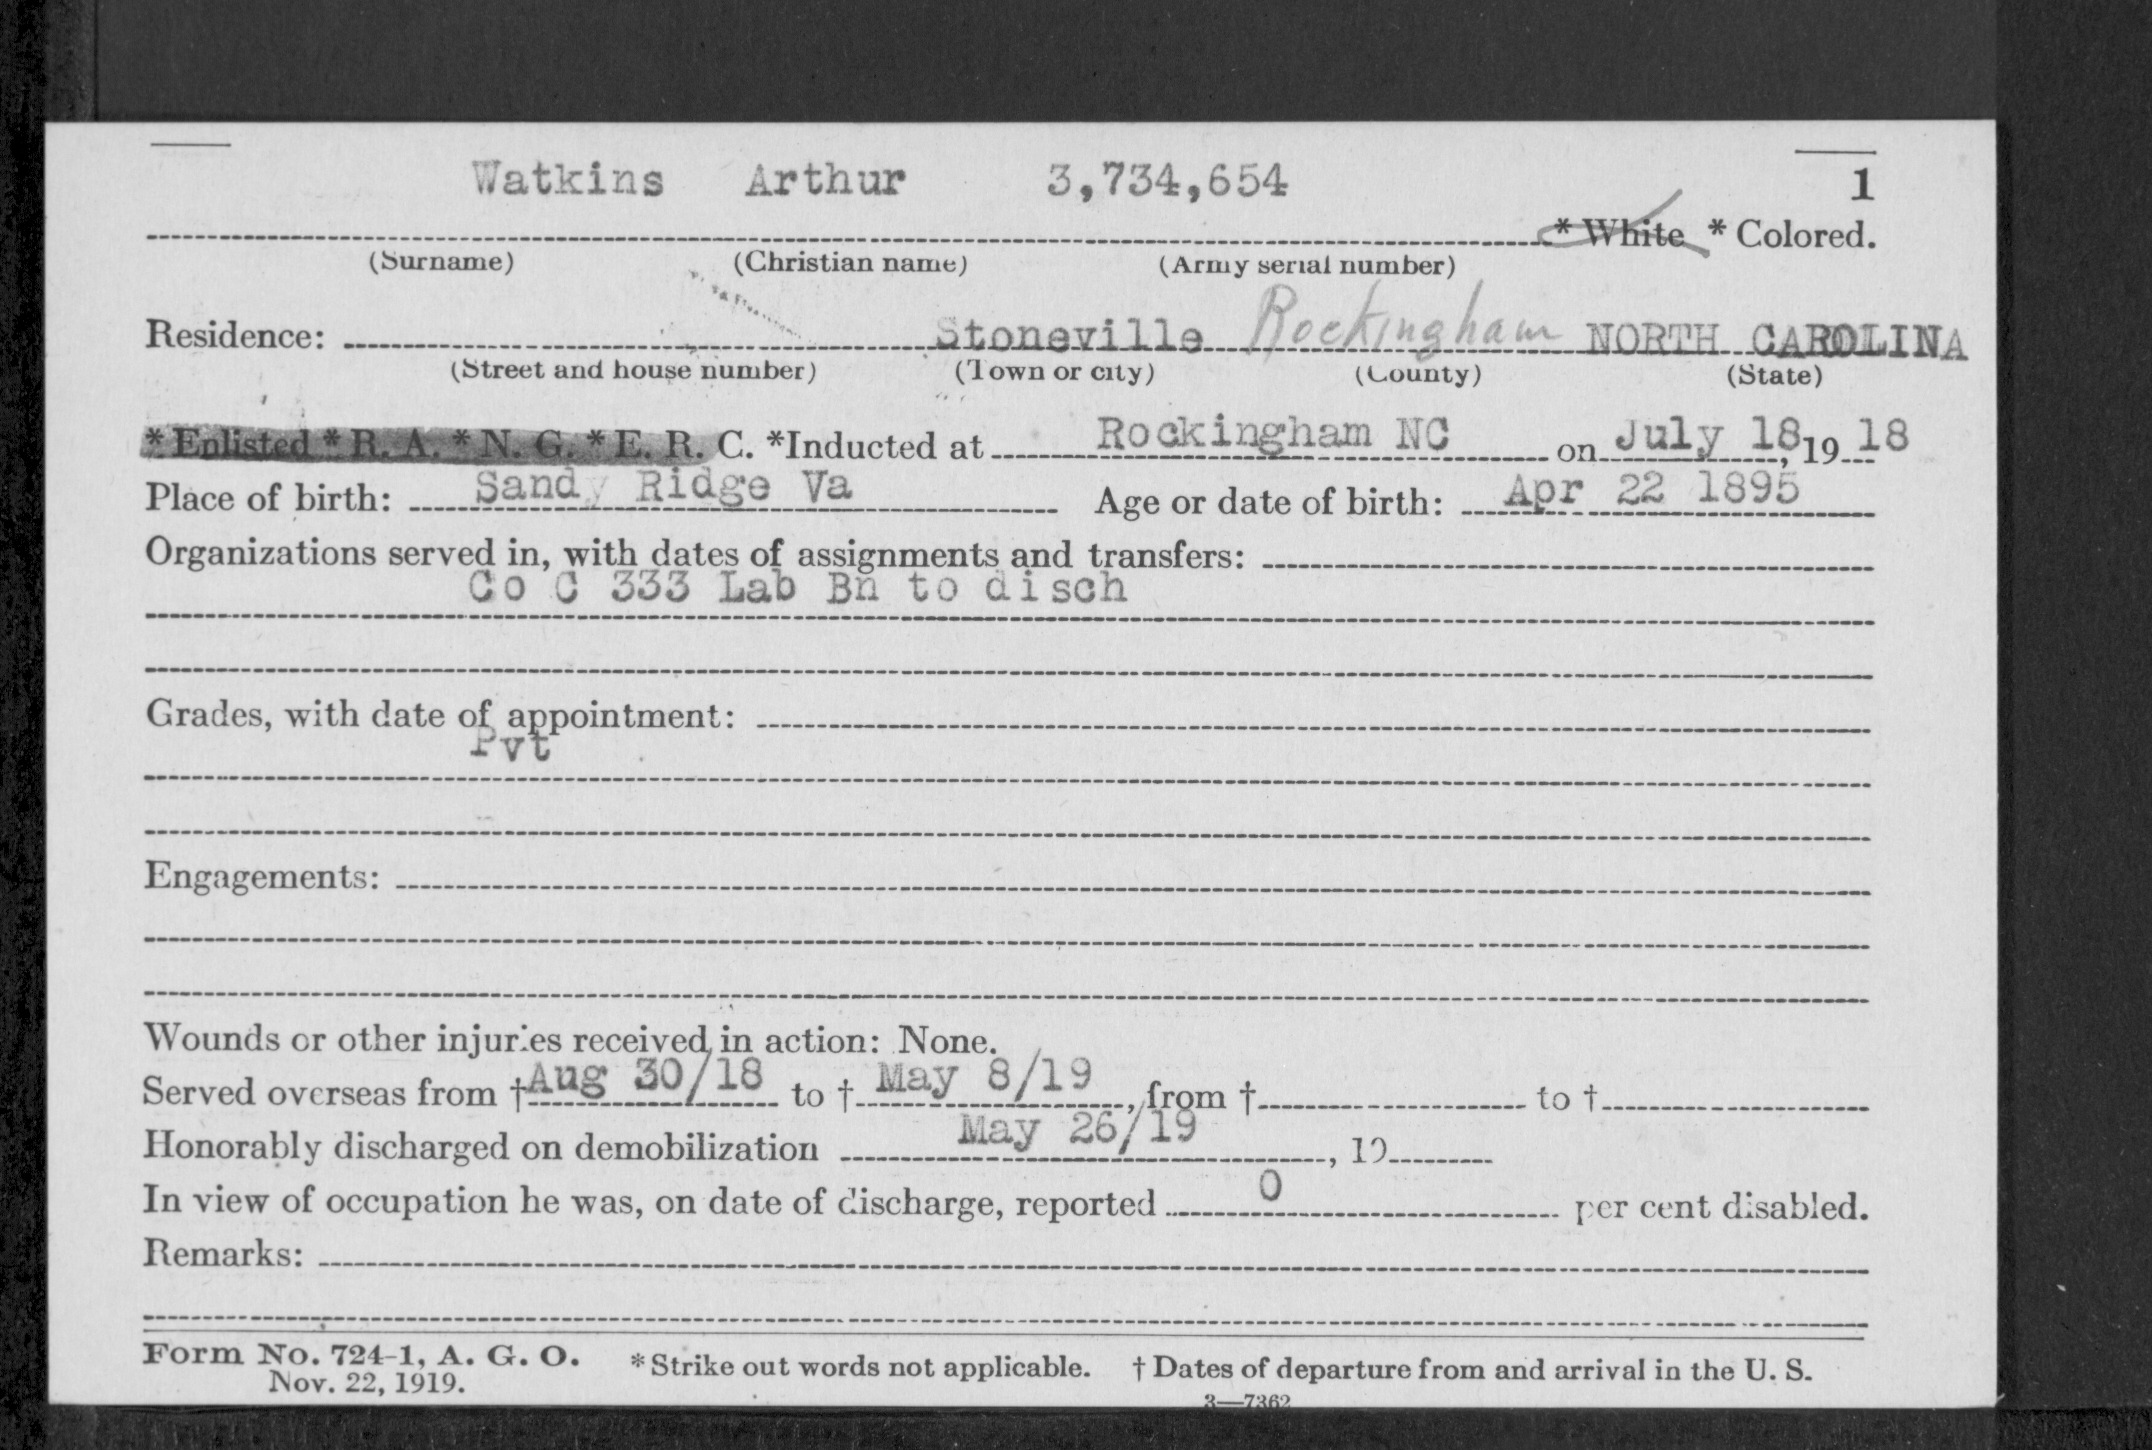 Watkins Arthur 3,734,654 1
* White * Colored.
(Surname) (Christian name) (Army serial number)
Residence: Stoneville Rockingham NORTH CAROLINA
(Street and house number) (Town or city) (County) (State)
* Enlisted * R. A. * N. G. * E. R. C. *Inducted at Rockingham NC on July 18, 19 18
Place of birth: Sandy Ridge Va Age or date of birth: Apr 22 1895
Organizations served in, with dates of assignments and transfers:
Co C 333 Lab Bn to disch
Grades, with date of appointment:
Pvt
Engagements:
Wounds or other injuries received in action: None.
Served overseas from † Aug 30/18 to † May 8/19, from † to †
Honorably discharged on demobilization May 26/19, 19
In view of occupation he was, on date of discharge, reported 0 per cent disabled.
Remarks:
Form No. 724-1, A. G. O. * Strike out words not applicable. † Dates of departure from and arrival in the U. S.
Nov. 22, 1919.
3—7362